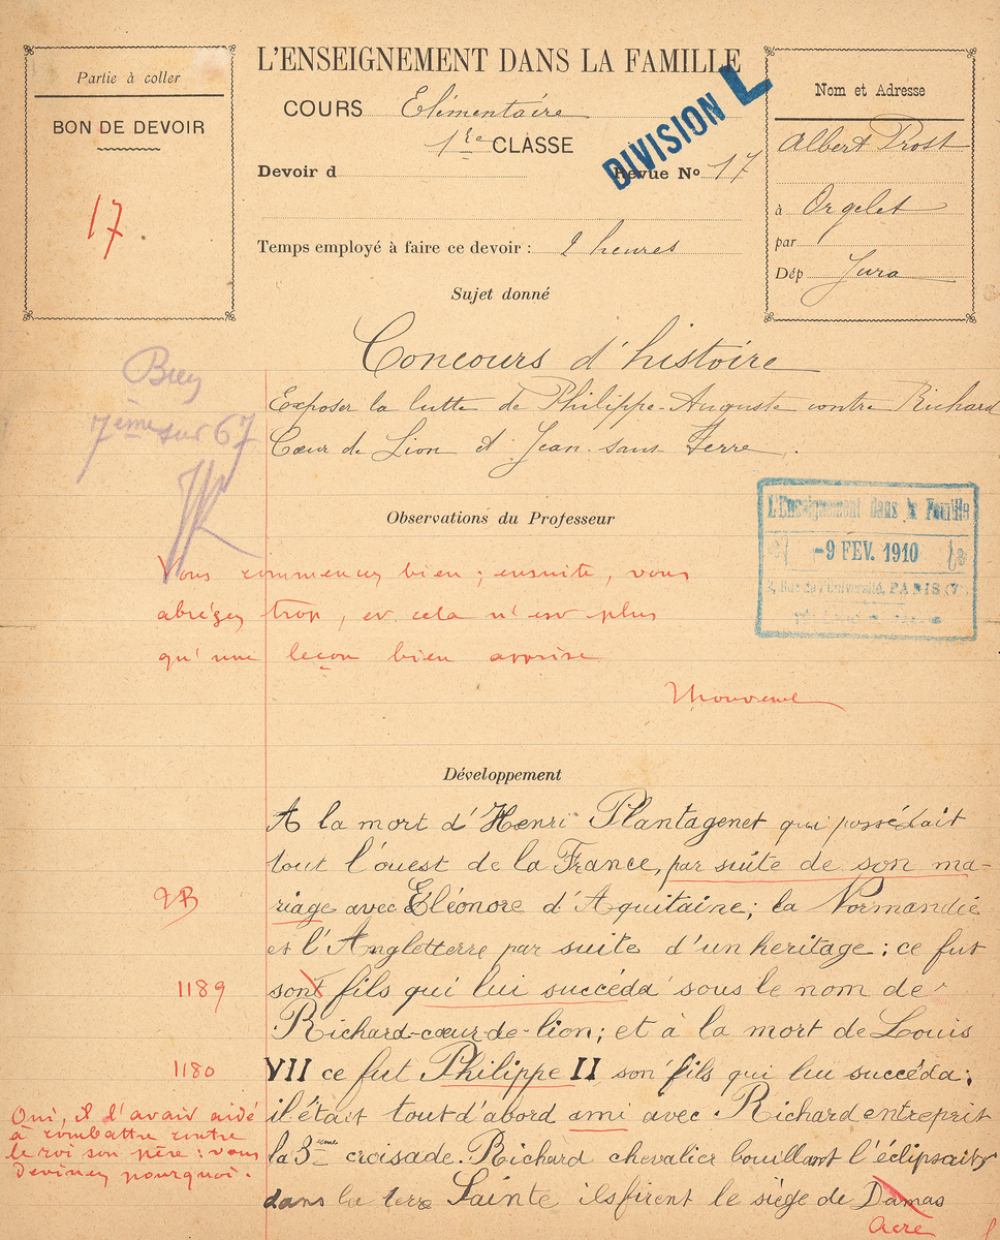 Partie à coller
BON DE DEVOIR
17
L'ENSEIGNEMENT DANS LA FAMILLE
COURS Elémentaire
1re CLASSE
DIVISION L
Devoir d
Revue No 17
Temps employé à faire ce devoir : 2 heures
Nom et Adresse
Albert Prost
à Orgelet
par
Dép Jura
Sujet donné
Concours d'histoire
Exposer la lutte de Philippe-Auguste contre Richard
Cœur de Lion et Jean sans Terre.
Bien
7ème sur 67
Observations du Professeur
L'Enseignement dans la Famille
-9 FÉV. 1910
Rue de l'Université, PARIS (7
Vous commencez bien ; ensuite, vous
abrégez trop, et cela n'est plus
qu'une leçon bien apprise
Développement
A la mort d'Henri Plantagenet qui possédait
tout l'ouest de la France, par suite de son ma-
riage avec Eléonore d'Aquitaine; la Normandie
et l'Angletterre par suite d'un heritage : ce fut
sont fils qui lui succéda sous le nom de
Richard-cœur-de-lion; et à la mort de Louis
VII ce fut Philippe II son fils qui lui succéda;
il était tout d'abord ami avec Richard entreprit
la 3ème croisade. Richard chevalier bouillant l'éclipsait
dans la terre Sainte ils firent le siège de Damas
Acre
TB
1189
1180
Oui, il l'avait aidé
à combattre contre
le roi son père : vous
devinez pourquoi.